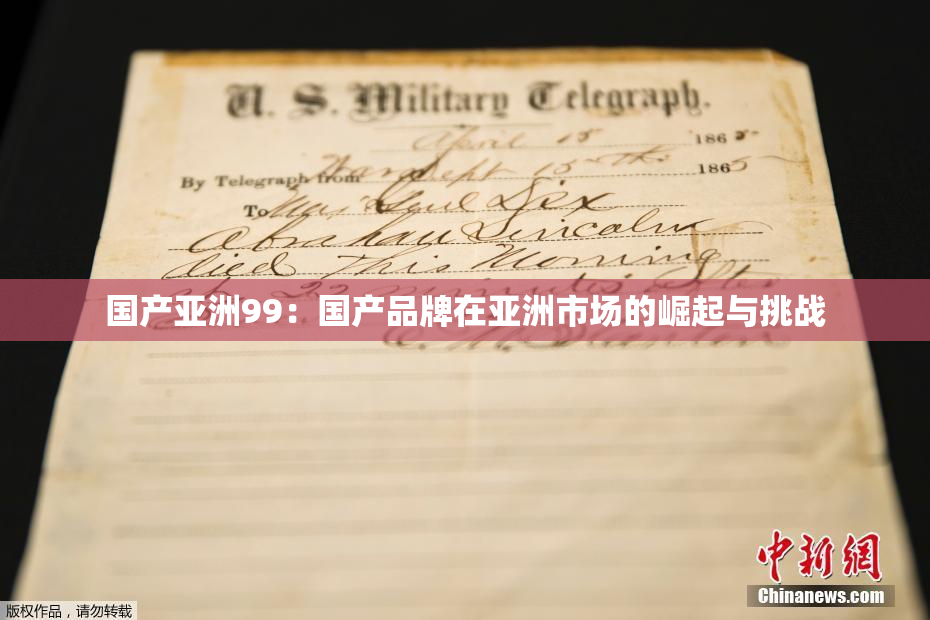 U. S. Military Telegraph.
April 15 1865
By Telegraph from War Dept 15th 1865
To Maj Genl Dix
Abraham Lincoln
died this Morning
at 22 minutes after
国产亚洲99：国产品牌在亚洲市场的崛起与挑战
E. M. Stanton
中新网
Chinanews.com
版权作品，请勿转载